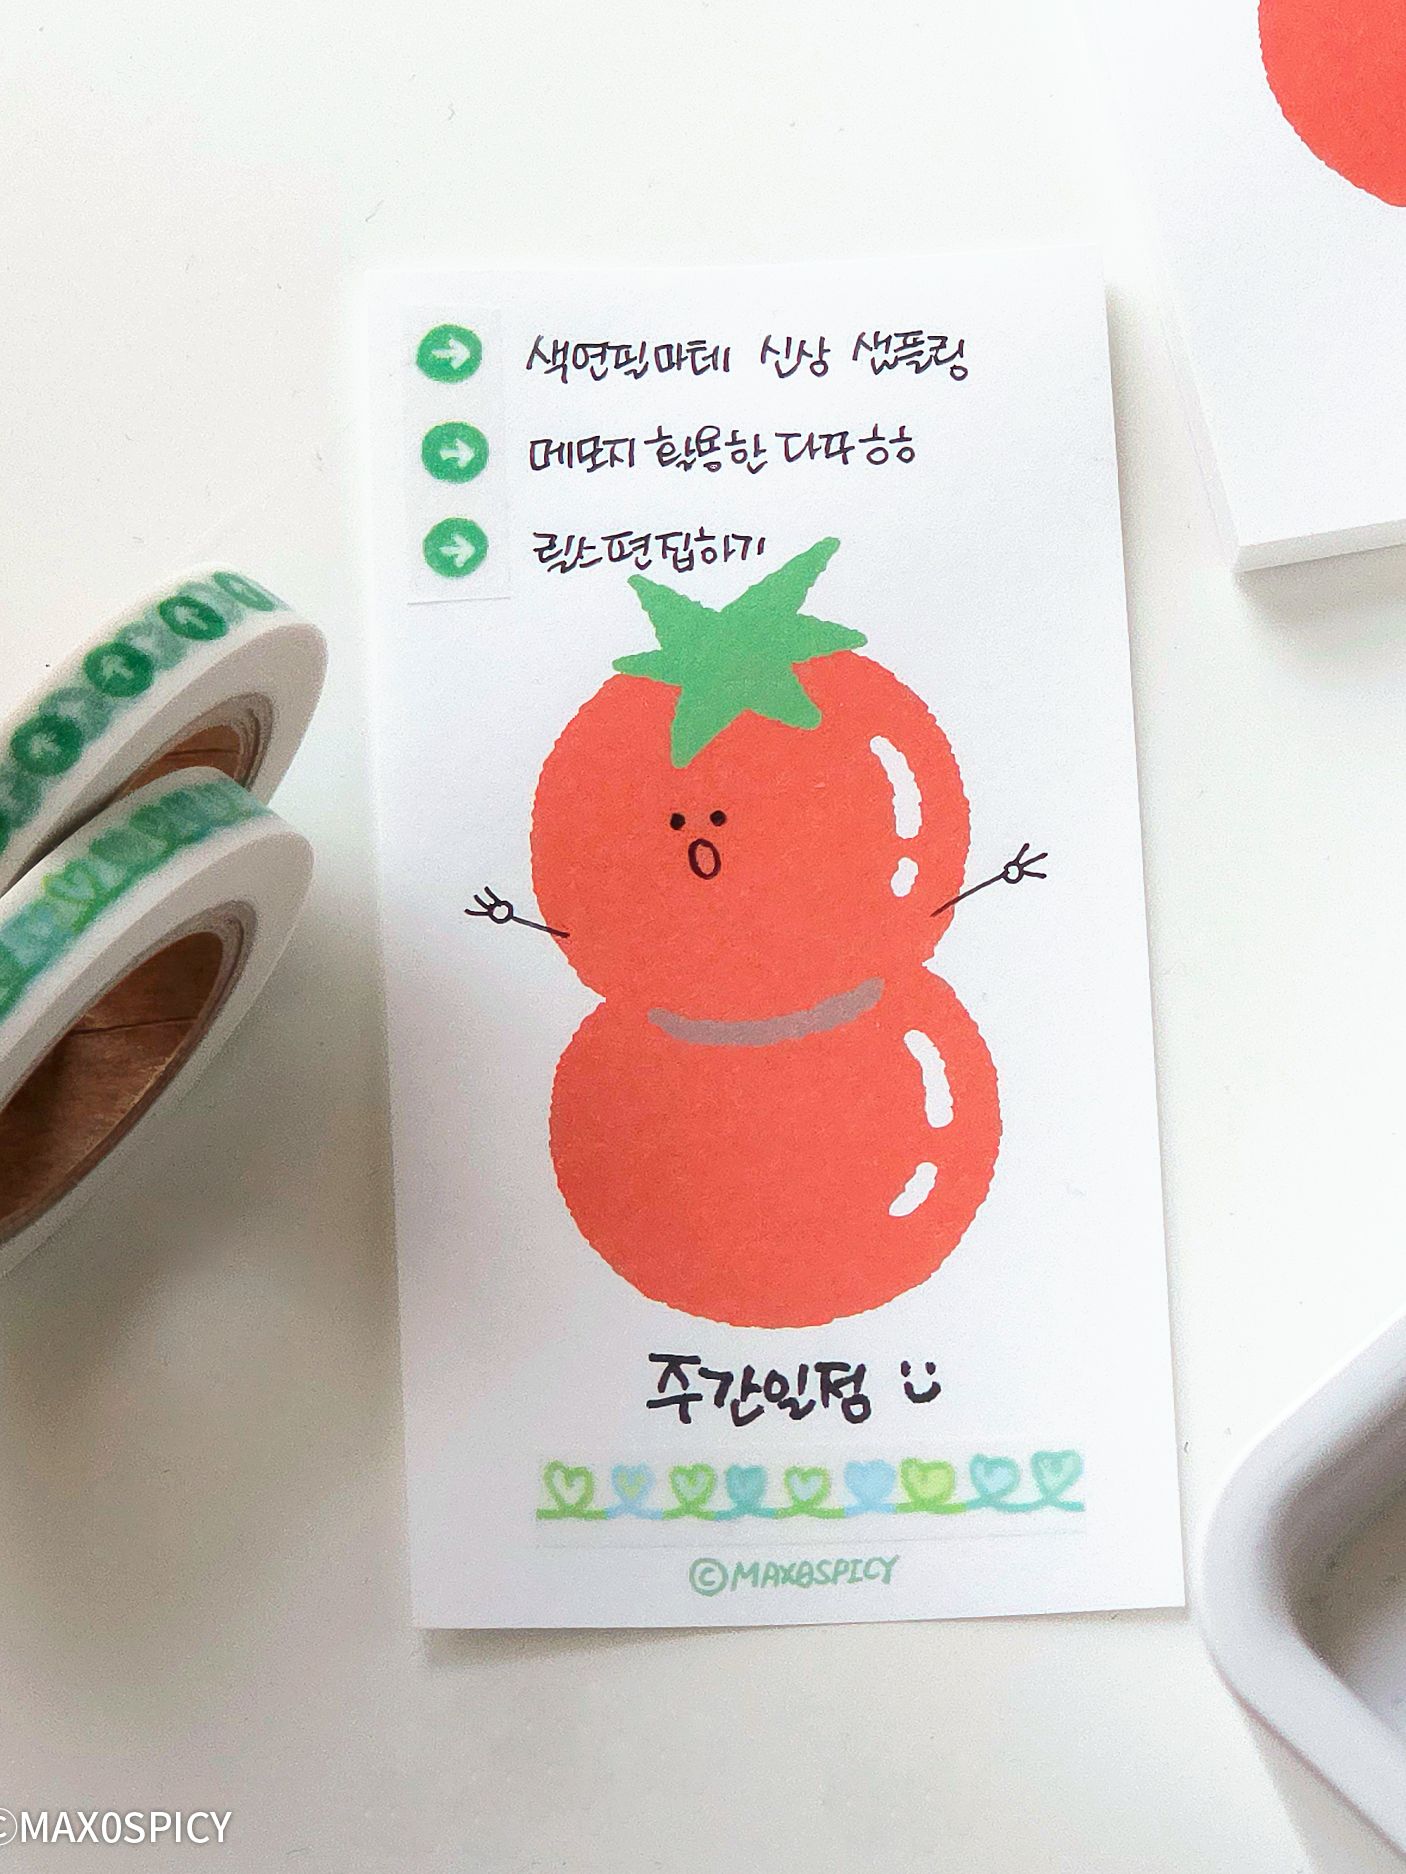 색연필마테 신상 샘플링
메모지 활용한 다꾸ㅎㅎ
릴스편집하기
주간일정
©MAX0SPICY
©MAX0SPICY